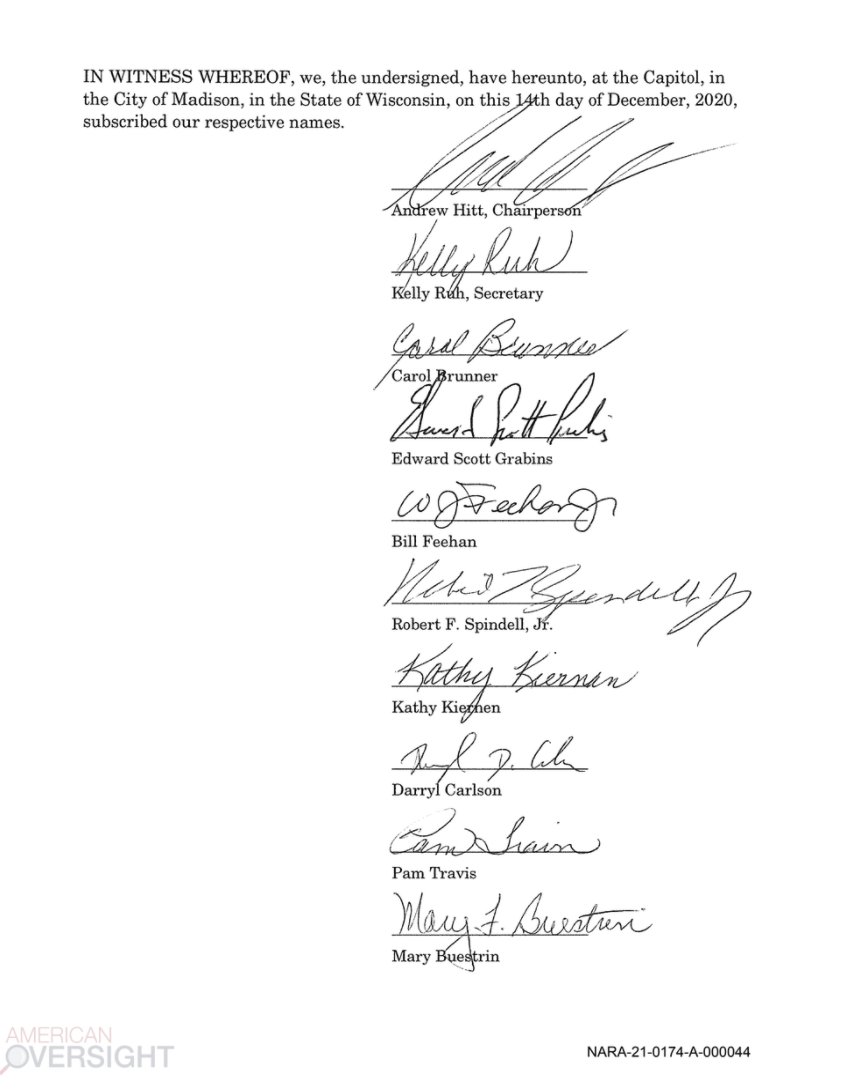 IN WITNESS WHEREOF, we, the undersigned, have hereunto, at the Capitol, in
the City of Madison, in the State of Wisconsin, on this 14th day of December, 2020,
subscribed our respective names.
Andrew Hitt, Chairperson
Kelly Ruh
Kelly Ruh, Secretary
Carol Brunner
Carol Brunner
Edward Scott Grabins
W J Feehan Jr
Bill Feehan
Robert F Spindell Jr
Robert F. Spindell, Jr.
Kathy Kiernan
Kathy Kiernen
Darryl Carlson
Pam Travis
Mary F. Buestrin
Mary Buestrin
AMERICAN
OVERSIGHT
NARA-21-0174-A-000044